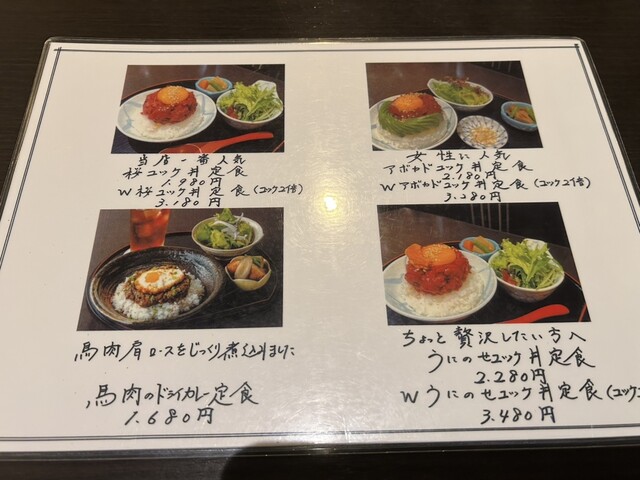 当店一番人気
桜ユッケ丼定食
1.980円
W桜ユッケ丼定食(ユッケ2倍)
3.180円
女性に人気
アボカドユッケ丼定食
2.180円
Wアボカドユッケ丼定食(ユッケ2倍)
3.280円
馬肉肩ロースをじっくり煮込みました
馬肉のドライカレー定食
1.680円
ちょっと贅沢したい方へ
うにのせユッケ丼定食
2.280円
Wうにのせユッケ丼定食(ユッケ
3.480円